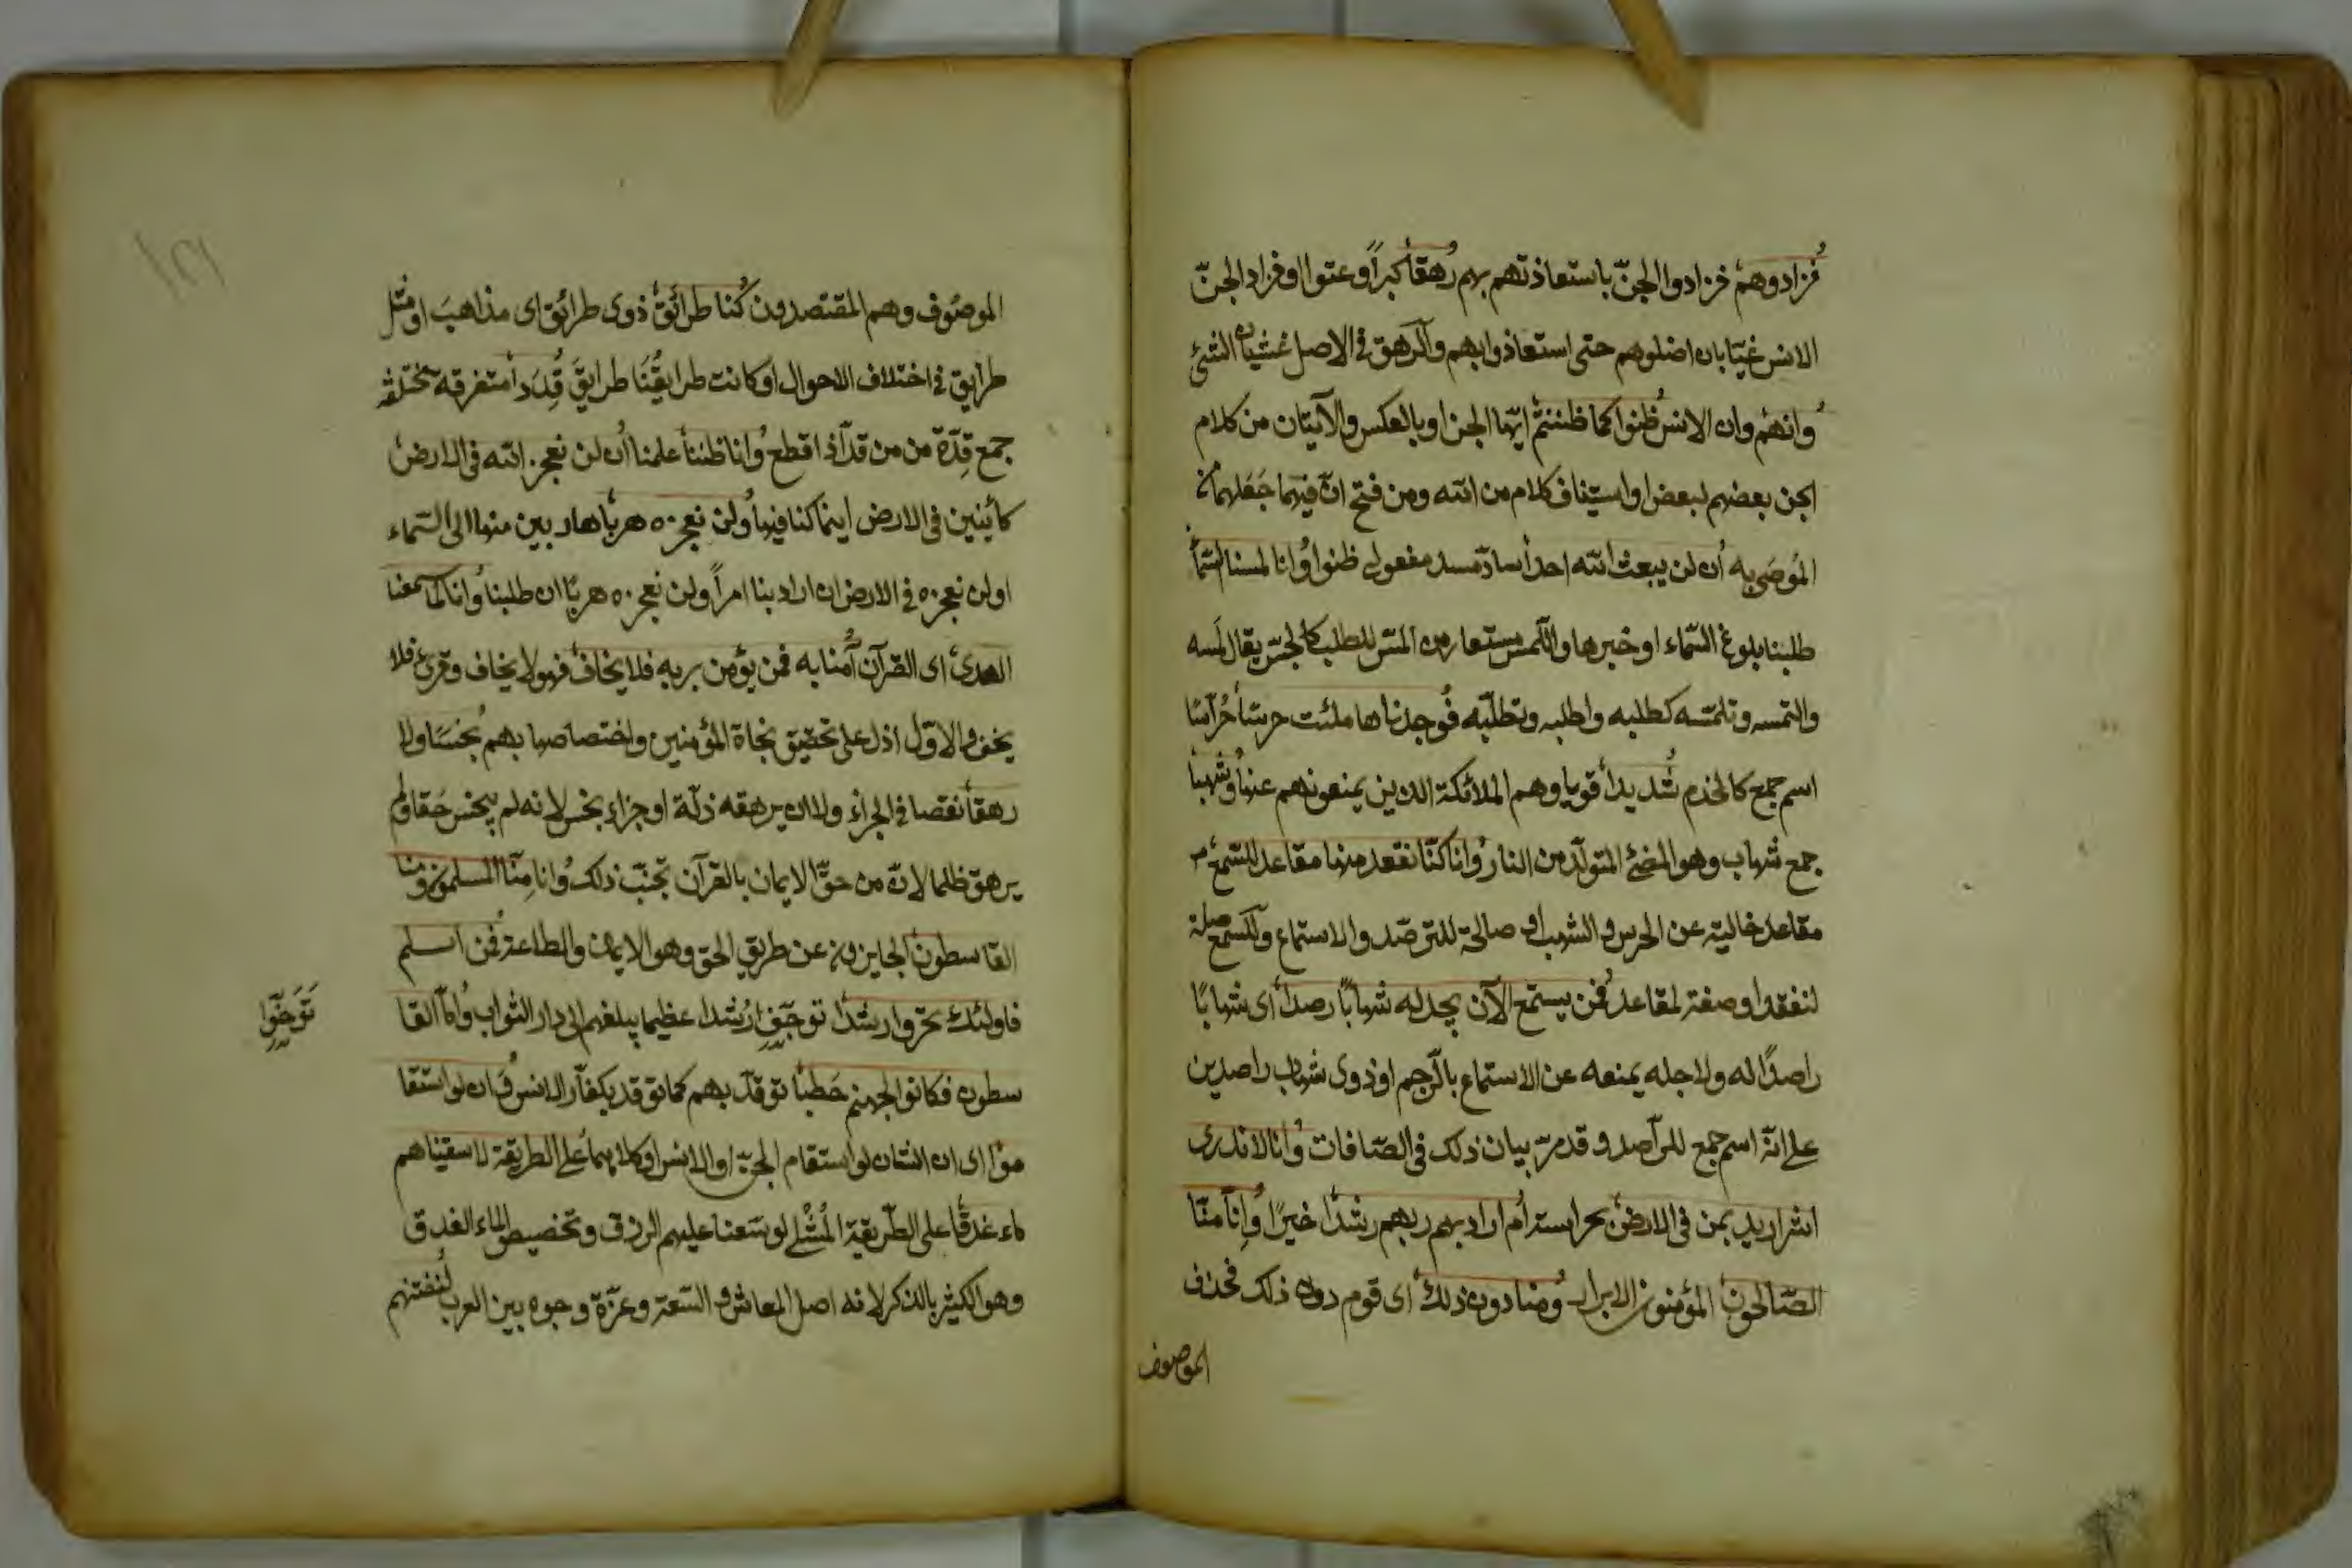 فزادوهم فزادوا الجنّ باستعاذتهم بهم رهقا كبراً وعتوا او فزاد الجنّ
الانس غيّا بان اضلوهم حتى استعاذوا بهم والرهق فى الاصل غشيان الشئ
وانهم وان الانس ظنوا كما ظننتم ايّها الجن او بالعكس والآيتان من كلام
الجن بعضهم لبعض او استيناف كلام من الله ومن فتح انّ فيهما جَعَلهما من
المُوحَى به أن لن يبعث الله احداً سادّ مسد مفعولى ظنوا وانا لمسنا السّمآ
طلبنا بلوغ السّماء او خبرها واللّمس مستعار من المسّ للطلب كالجسّ يقال لمسه
والتمسه وتلمّسه كطلبه واطلبه وتطلّبه فوجدناها ملئت حرسًا حُرّاسًا
اسم جمع كالخدم شديداً قويا وهم الملائكة الذين يمنعونهم عنها وشهبا
جمع شهاب وهو المضئ المتولّد من النار وانا كنّا نقعد منها مقاعد للسّمع
مقاعد خالية عن الحرس والشهب او صالحة للترصّد والاستماع وللسمع صلة
لنقعد او صفة لمقاعد فمن يستمع الآن يجد له شهابًا رصداً اى شهابًا
راصدًا له ولاجله يمنعه عن الاستماع بالرّجم او ذوى شهاب راصدين
على انّه اسم جمع للرّاصد وقد مرّ بيان ذلك فى الصّافات وانا لا ندرى
اشر اريد بمن فى الارض بحراسة أم اراد بهم ربهم رشدًا خيرًا وانّا منّا
الصّالحون المؤمنون الابرار ومنا دون ذلك اى قوم دون ذلك فحذف
الموصوف
الموصُوف وهم المقتصدون كُنا طرائق ذوى طرائق اى مذاهبَ او مثل
طرايق فى اختلاف الاحوال او كانت طرايقُنَا طرايقَ قِدَداً متفرقة مختلفة
جمع قِدّة من من قدّ اذا قطع وانا ظننا علمنا أن لن نعجز الله فى الارض
كائنين فى الارض اينما كنا فيها ولن نعجزه هرباً هاربين منها الى السّماء
او لن نعجزه فى الارض ان اراد بنا امراً ولن نعجزه هربًا ان طلبنا وانا لما سمعنا
الهدى اى القرآن آمنا به فمن يؤمن بربه فلا يخاف فهو لا يخاف وقرئ فلا
يخف والاوّل ادل على تحقيق نجاة المؤمنين واختصاصها بهم بخسًا ولا
رهقا نقصا فى الجزاء ولا ان يرهقه ذلّة او جزاء بخس لانه لم يبخس حقا ولم
يرهق ظلما لانّ من حقّ الايمان بالقرآن تجنّب ذلك وانا مِنّا المسلمون ومنا
القاسطون الجايرون عن طريق الحق وهو الايمان والطاعة فمن اسلم
فاولئك تحرّوا رشدًا توخّوا رُشدا عظيما يبلغهم الى دار الثواب وامّا القا
تَوَخَّوا
سطون فكانوا لجهنم حَطبًا توقّد بهم كما توقد بكفّار الانس وَان لو استقا
موا اى ان الشان لو استقام الجنّ او الانس او كلاهما على الطريقة لاسقيناهم
ماء غدقًا على الطّريقة المُثْلى لوسّعنا عليهم الرزق وتخصيص الماء الغدق
وهو الكثير بالذكر لانه اصل المعاش والسّعة وعزّة وجوده بين العرب لنفتنهم